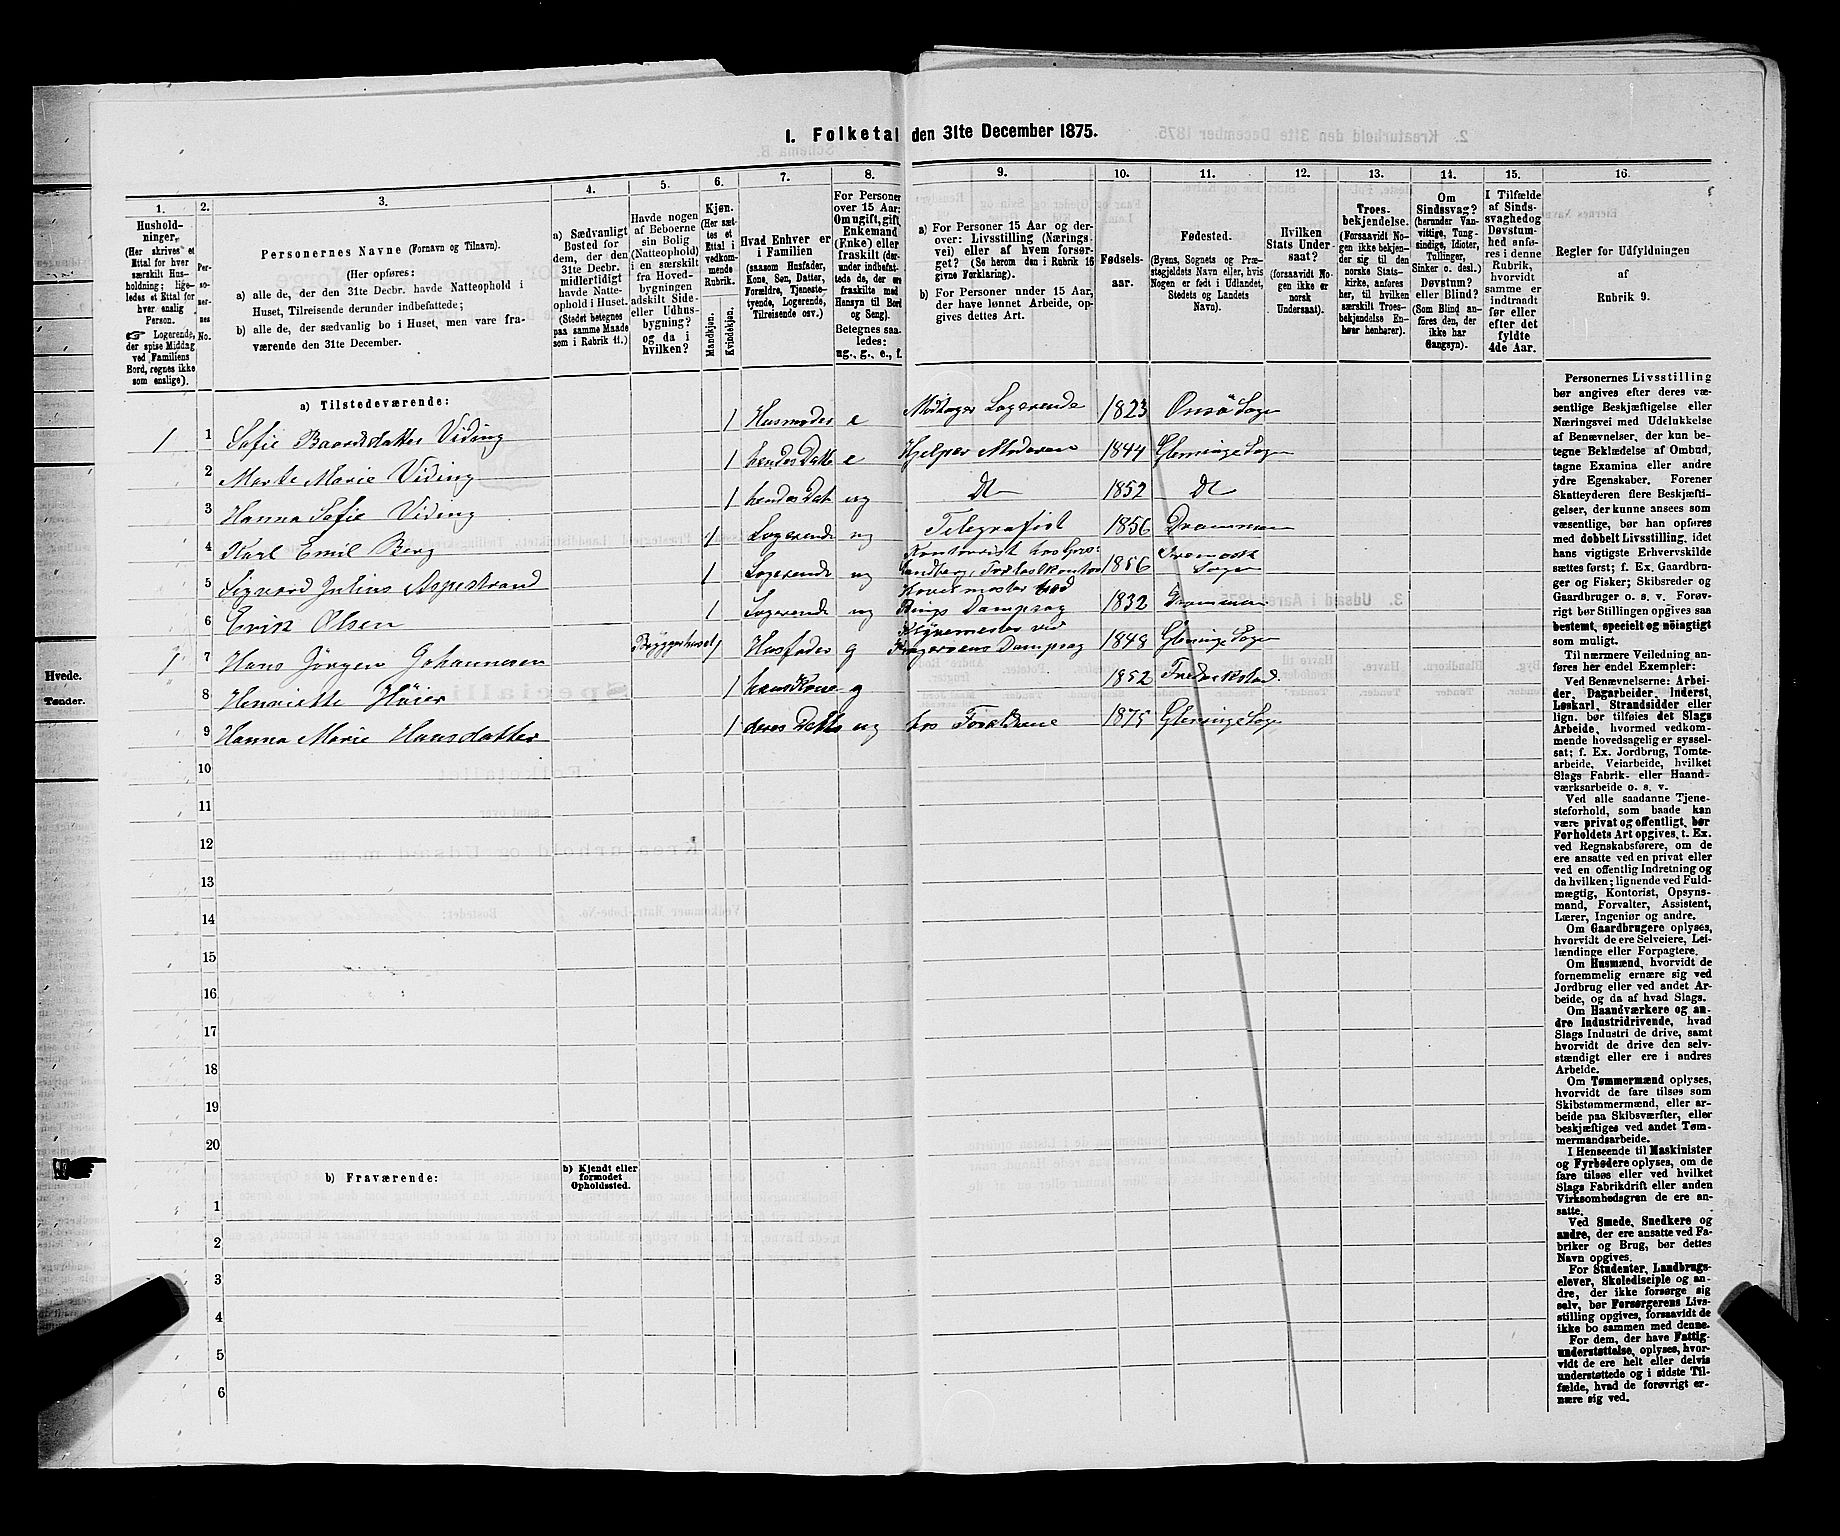 1. Folketal den 31te December 1875.
1.
Hushold-
ninger.
(Her skrives et
Ettal for hver
særskilt Hus-
holdning; lige-
ledes et Ettal for
hver enslig
Person.
☞ Logerende,
der spise Middag
ved Familiens
Bord, regnes ikke
som enslige).
2.
Per-
so-
ner-
nes
No.
3.
Personernes Navne (Fornavn og Tilnavn).
(Her opføres:
a) alle de, der den 31te Decbr. havde Natteophold i
Huset, Tilreisende derunder indbefattede;
b) alle de, der sædvanlig bo i Huset, men vare fra-
værende den 31te December.
4.
a) Sædvanligt
Bosted for
dem, der den
31te Decbr.
midlertidigt
havde Natte-
ophold i Huset.
(Stedet betegnes
paa samme Maade
som i Rubrik 11.)
5.
Havde nogen
af Beboerne
sin Bolig
(Natteophold)
i en særskilt
fra Hoved-
bygningen
adskilt Side-
eller Udhus-
bygning?
og da i
hvilken?
6.
Kjøn.
(Her sæt-
tes et
Ettal i
vedkom-
mende
Rubrik.
Mandkjøn.
Kvindekjøn.
7.
Hvad Enhver er
i Familien
(saasom Husfader,
Kone, Søn, Datter,
Forældre, Tjeneste-
tyende, Logerende,
Tilreisende osv.)
8.
For Personer
over 15 Aar:
Om ugift, gift
Enkemand
(Enke) eller
fraskilt (der-
under indbefat-
tede de, der ere
fraskilte med
Hensyn til Bord
og Seng).
Betegnes saa-
ledes:
ug., g., e., f.
9.
a) For Personer 15 Aar og der-
over: Livsstilling (Nærings-
vei) eller af hvem forsør-
get? (Se herom den i Rubrik 16
givne Forklaring).
b) For Personer under 15 Aar,
der have lønnet Arbeide, op-
gives dettes Art.
10.
Fødsels-
aar.
11.
Fødested.
(Byens, Sognets og Præ-
stegjeldets Navn eller, hvis
Nogen er født i Udlandet,
Stedets og Landets
Navn).
12.
Hvilken
Stats Under-
saat?
(forsaavidt No-
gen ikke er
norsk
Undersaat).
13.
Troes-
bekjendelse.
(Forsaavidt No-
gen ikke bekjen-
der sig til den
norske Stats-
kirke, anføres
her, til hvilken
særskilt Troes-
bekjendelse En-
hver henhører).
14.
Om
Sindssvag?
(herunder Van-
vittige, Tung-
sindige, Idioter,
Tullinger,
Sinker o. desl.)
Døvstum?
eller Blind?
(Som Blind an-
føres den, der
ikke har
Gangsyn).
15.
I Tilfælde
af Sinds-
svaghed og
Døvstum-
hed anfø-
res i denne
Rubrik,
hvorvidt
samme er
indtraadt
før eller
efter det
fyldte
4de Aar.
16.
Regler for Udfyldningen
af
Rubrik 9.
a) Tilstedeværende:
1 1 Sofie Baardsdatter Viding 1 Husmoder e Modtager Logerende 1823 Onsö Sogn
2 Marte Marie Viding 1 hendes Datte e Hjelper Moderen 1844 Glemminge Sogn
3 Hanna Sofie Viding 1 hendes Dat ug Do 1852 Do
4 Karl Emil Berg 1 Logerende ug Telegrafist 1856 Drammen
5 Sigvard Julius Aspestrand 1 Logerende ug Kontorist hos 1856 Sogn
6 Erik Olsen 1 Logerende ug Hövelmester ved Dampsag 1832 Drammen
1 7 Hans Jörgen Johannesen Bryggerhuset 1 Husfader g ved Dampsag 1848 Glemminge Sogn
8 Henriette Höier 1 hans Kone g 1852 Fredrikstad
9 Hanna Marie Hansdatter 1 deres Datte ug hos Forældrene 1875 Glemminge Sogn
10
11
12
13
14
15
16
17
18
19
20
b) Fraværende:
b) Kjendt eller
formodet
Opholdssted.
1
2
3
4
5
6
Personernes Livsstilling
bør angives efter deres væ-
sentlige Beskjæftigelse eller
Næringsvei med Udelukkelse
af Benævnelser, der kun be-
tegne Beklædelse af Ombud,
tagne Examina eller andre
ydre Egenskaber. Forener
Skatteyderen flere Beskjæfti-
gelser, der kunne ansees som
væsentlige, bør han opføres
med dobbelt Livsstilling, idet
hans vigtigste Erhvervskilde
sættes først; f. Ex. Gaardbru-
ger og Fisker; Skibsreder og
Gaardbruger o. s. v. Forøv-
rigt bør Stillingen opgives saa
bestemt, specielt og nöiagtigt
som muligt.
Til nærmere Veiledning an-
føres her endel Exempler:
Ved Benævnelserne: Arbei-
der, Dagarbeider, Inderst,
Løskarl, Strandsidder eller
lign. bør tilføies det Slags
Arbeide, hvormed vedkom-
mende hovedsagelig er syssel-
sat; f. Ex. Jordbrug, Tomte-
arbeide, Veiarbeide, hvilket
Slags Fabrik- eller Haand-
værksarbeide o. s. v.
Ved alle saadanne Tjene-
steforhold, som baade kan
være privat og offentligt, bør
Forholdets Art opgives, t. Ex.
ved Regnskabsførere, om de
ere ansatte ved en privat eller
ved en offentlig Indretning og
da hvilken; lignende ved Fuld-
mægtig, Kontorist, Opsyns-
mand, Forvalter, Assistent,
Lærer, Ingeniør og andre.
Om Gaardbrugere oplyses,
hvorvidt de ere Selveiere, Lei-
lændinge eller Forpagtere.
Om Husmænd, hvorvidt de
fornemmelig ernære sig ved
Jordbrug eller ved andet Ar-
beide, og da af hvad Slags.
Om Haandværkere og an-
dre Industridrivende, hvad
Slags Industri de drive, samt
hvorvidt de drive den selv-
stændigt eller ere i andres
Arbeide.
Om Tømmermænd oplyses,
hvorvidt de fare tilsøs som
Skibstømmermænd, eller ar-
beide paa Skibsværfter, eller
beskjæftiges ved andet Tøm-
mermandsarbeide.
I Henseende til Maskinister
og Fyrbødere oplyses, om de
fare tilsøs eller ved hvilket
Slags Fabrikdrift eller anden
Virksomhedsgren de ere an-
satte.
Ved Smede, Snedkere og
andre, der ere ansatte ved Fa-
briker og Brug, bør dettes
Navn opgives.
For Studenter, Landbrugs-
elever, Skoledisciple og an-
dre, der ikke forsørge sig
selv, bør Forsørgerens Livs-
stilling opgives, forsaavidt de
ikke bo sammen med denne.
For dem, der have Fattig-
understøttelse, oplyses, hvor-
vidt de ere helt eller delvis
understøttede og i sidste Til-
fælde, hvad de forøvrigt er-
nære sig ved.
Hvede.
Tønder.